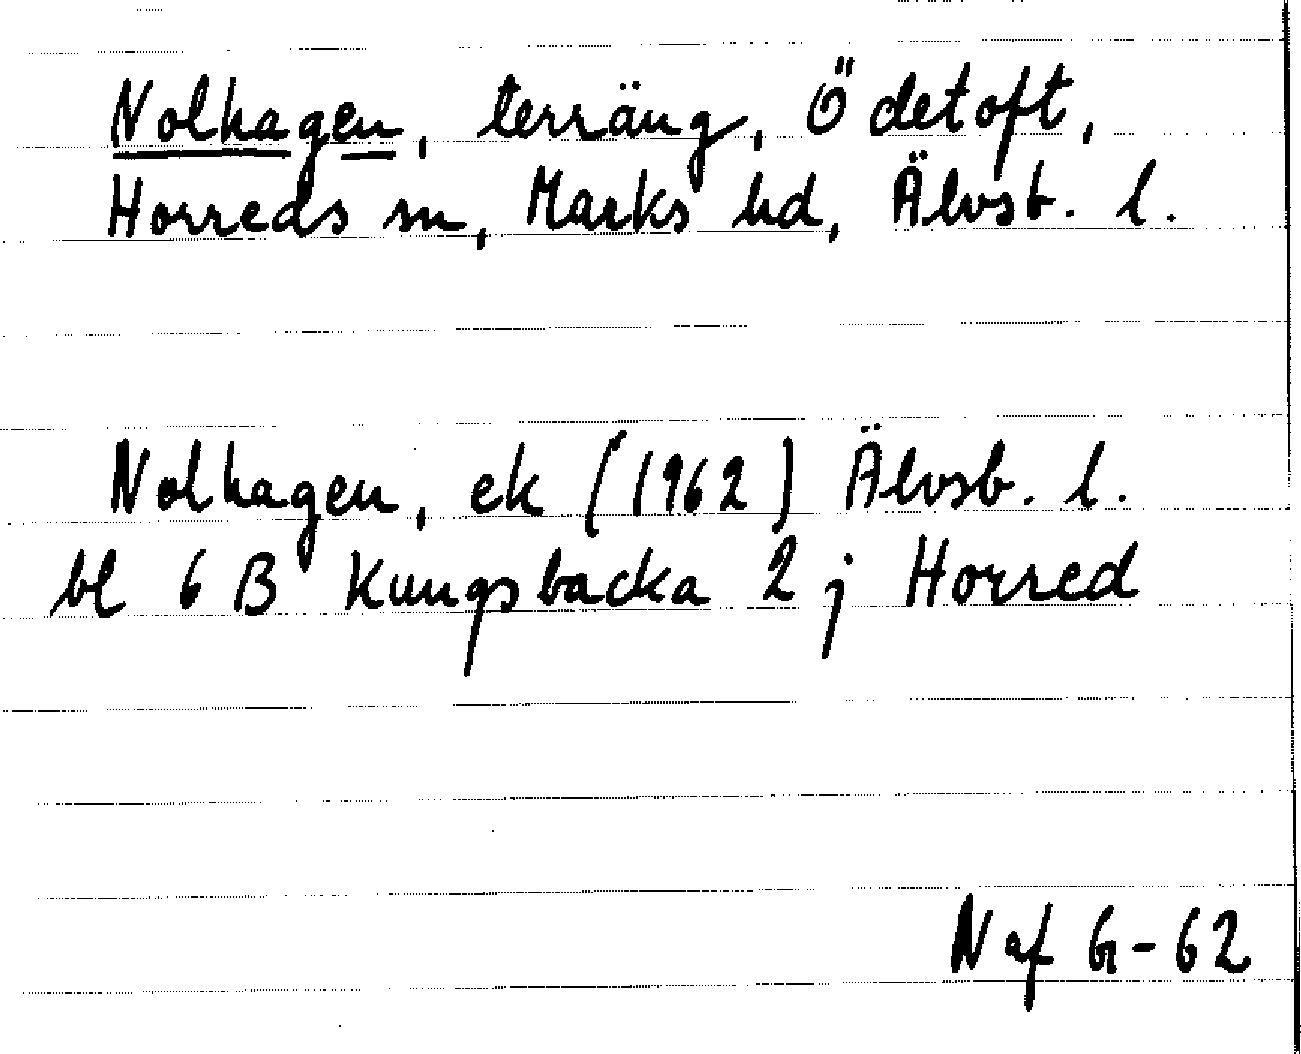 Nolhagen, terräng, Ödetoft,
Horreds sn, Marks hd, Älvsb. l.
Nolhagen, ek (1962) Älvsb. l.
bl 6 B Kungsbacka 2 j Horred
Naf G-62